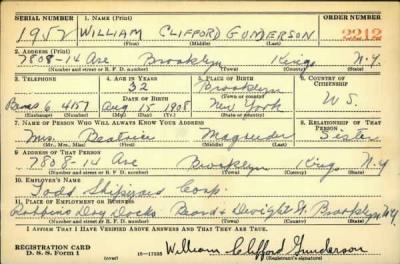 SERIAL NUMBER 1. NAME (Print) ORDER NUMBER
1952 WILLIAM CLIFFORD GUNDERSON 2212
(First) (Middle) (Last)
2. ADDRESS (Print)
7808-14 Ave Brooklyn Kings N.Y.
(Number and street or R. F. D. number) (Town) (County) (State)
3. TELEPHONE 4. AGE IN YEARS 5. PLACE OF BIRTH 6. COUNTRY OF CITIZENSHIP
32 Brooklyn
DATE OF BIRTH (Town or county)
6 4157 Aug 15 1908 New York U.S.
(Exchange) (Number) (Mo.) (Day) (Yr.) (State or country)
7. NAME OF PERSON WHO WILL ALWAYS KNOW YOUR ADDRESS 8. RELATIONSHIP OF THAT PERSON
Mrs. Beatrice Magruder Sister
(Mr., Mrs., Miss) (First) (Middle) (Last)
9. ADDRESS OF THAT PERSON
7808-14 Ave Brooklyn Kings N.Y
(Number and street or R. F. D. number) (Town) (County) (State)
10. EMPLOYER'S NAME
Todd Shipyards Corp.
11. PLACE OF EMPLOYMENT OR BUSINESS
Robbins Dry Docks Beard & Dwight St Brooklyn N.Y
(Number and street or R. F. D. number) (Town) (County) (State)
I AFFIRM THAT I HAVE VERIFIED ABOVE ANSWERS AND THAT THEY ARE TRUE.
REGISTRATION CARD William Clifford Gunderson
D. S. S. Form 1 16-17105 (Registrant's signature)